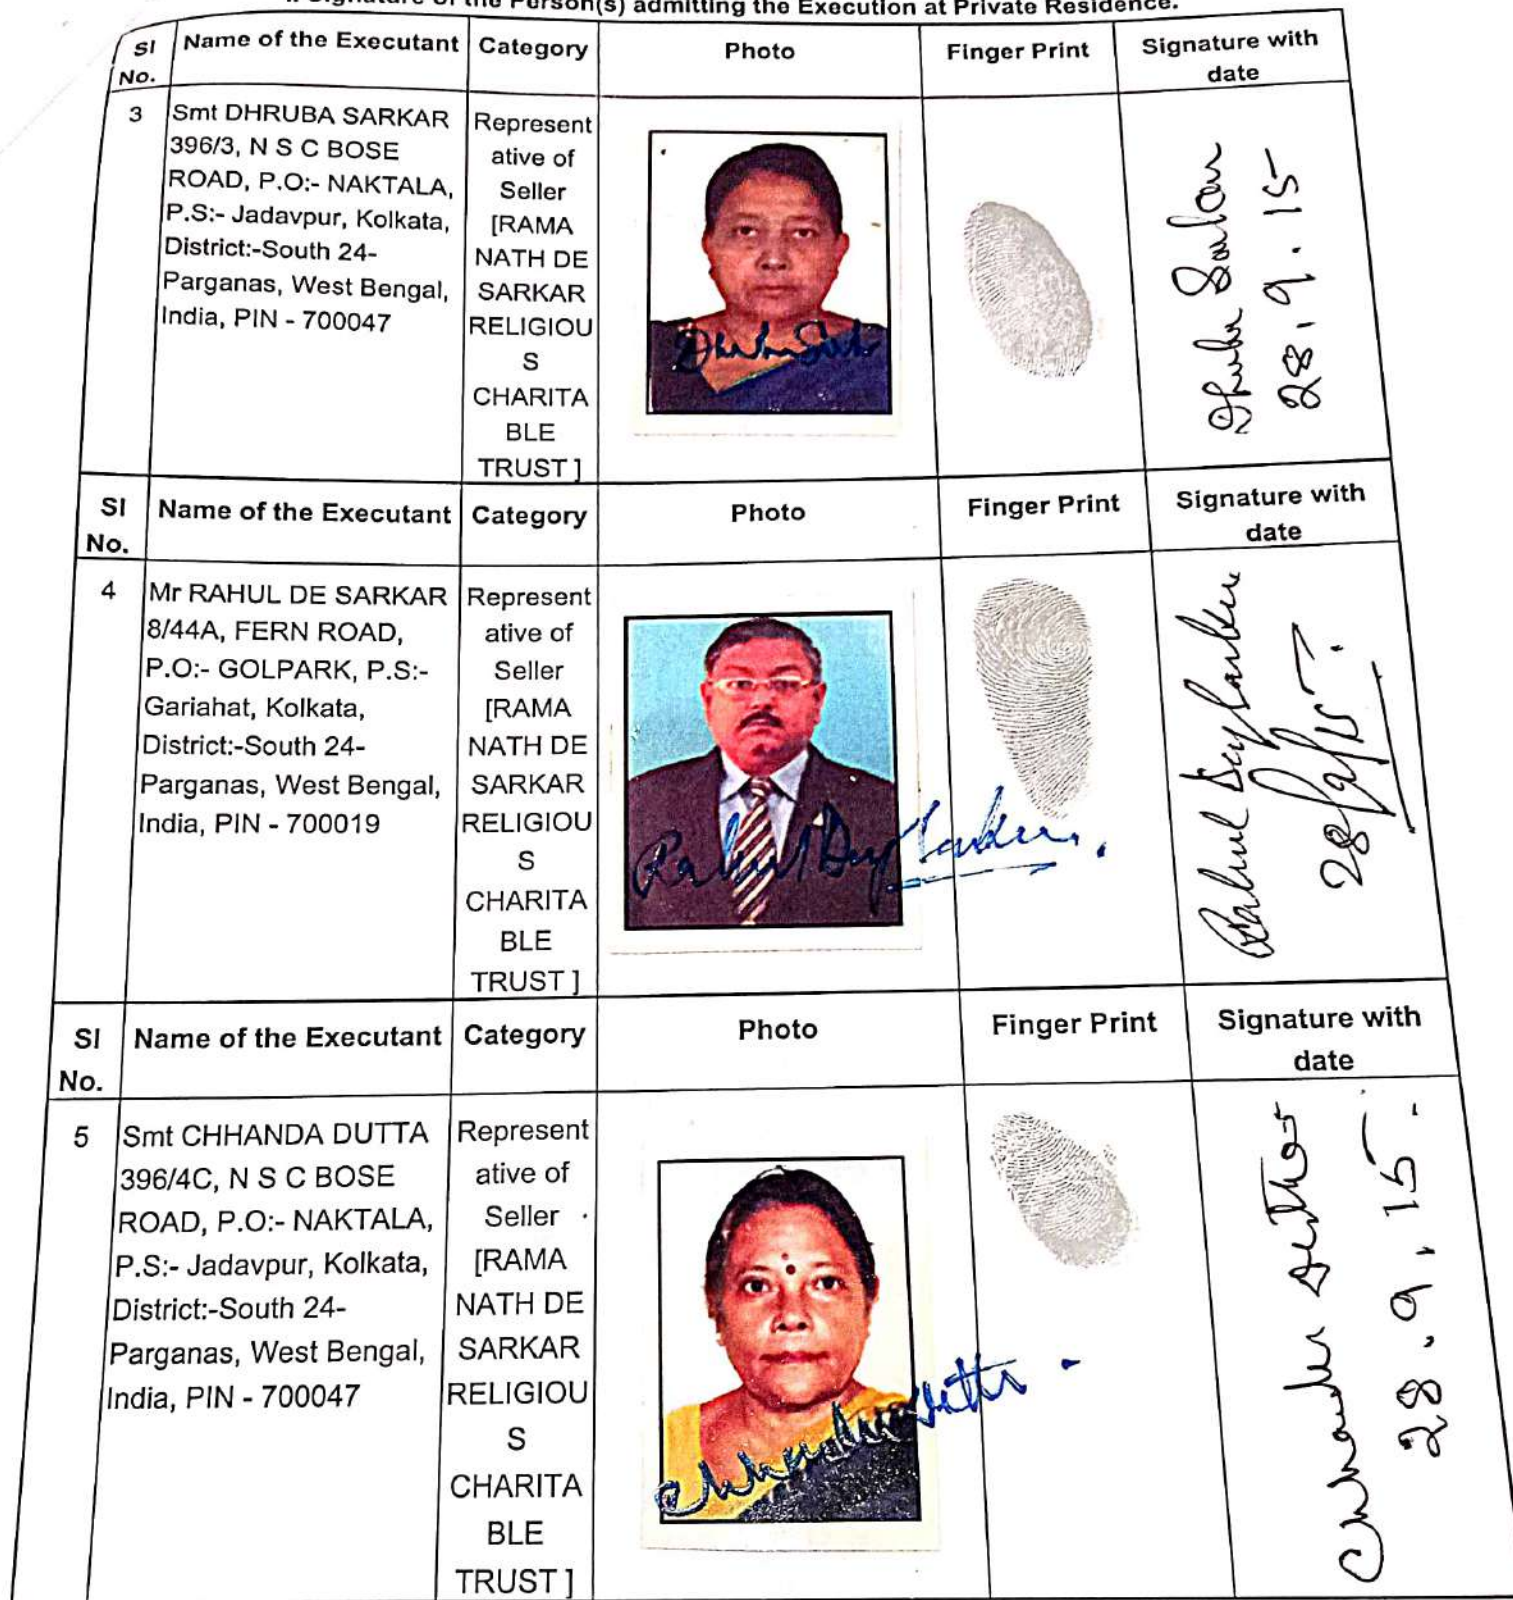 Signature of the Person(s) admitting the Execution at Private Residence.
Sl No. Name of the Executant Category Photo Finger Print Signature with date
3
Smt DHRUBA SARKAR
396/3, N S C BOSE
ROAD, P.O:- NAKTALA,
P.S:- Jadavpur, Kolkata,
District:-South 24-
Parganas, West Bengal,
India, PIN - 700047
Represent
ative of
Seller
[RAMA
NATH DE
SARKAR
RELIGIOU
S
CHARITA
BLE
TRUST ]
Dhruba Sarkar
Dhruba Sarkar
28.9.15
Sl No. Name of the Executant Category Photo Finger Print Signature with date
4
Mr RAHUL DE SARKAR
8/44A, FERN ROAD,
P.O:- GOLPARK, P.S:-
Gariahat, Kolkata,
District:-South 24-
Parganas, West Bengal,
India, PIN - 700019
Represent
ative of
Seller
[RAMA
NATH DE
SARKAR
RELIGIOU
S
CHARITA
BLE
TRUST ]
Rahul Dey Sarkar.
Rahul Dey Sarkar
28/9/15.
Sl No. Name of the Executant Category Photo Finger Print Signature with date
5
Smt CHHANDA DUTTA
396/4C, N S C BOSE
ROAD, P.O:- NAKTALA,
P.S:- Jadavpur, Kolkata,
District:-South 24-
Parganas, West Bengal,
India, PIN - 700047
Represent
ative of
Seller
[RAMA
NATH DE
SARKAR
RELIGIOU
S
CHARITA
BLE
TRUST ]
Chhanda Dutta.
Chhanda Dutta
28.9.15.